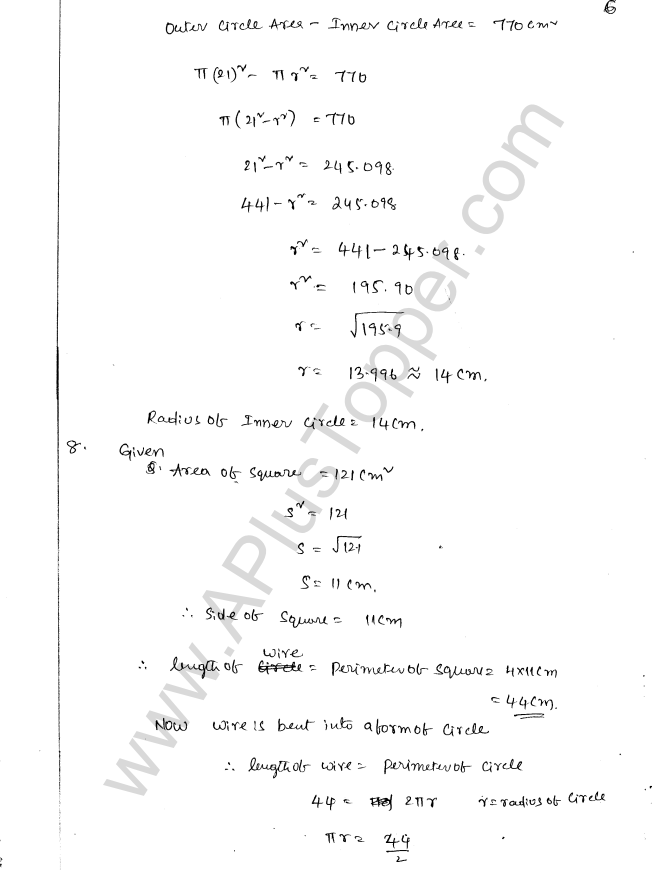 6
Outer Circle Area - Inner Circle Area = 770 cm²
π(21)² - πr² = 770
π(21² - r²) = 770
21² - r² = 245.098
441 - r² = 245.098
r² = 441 - 245.098.
r² = 195.90
r = √195.9
r = 13.996 ≈ 14 cm.
Radius of Inner Circle = 14 cm.
8. Given
Area of square = 121 cm²
s² = 121
s = √121
S = 11 cm.
∴ Side of square = 11cm
wire
∴ length of Circle = Perimeter of square = 4×11cm
= 44cm.
Now wire is bent into a form of circle
∴ length of wire = Perimeter of circle
44 = 2πr r = radius of circle
πr = 44/2
www.APlusTopper.com